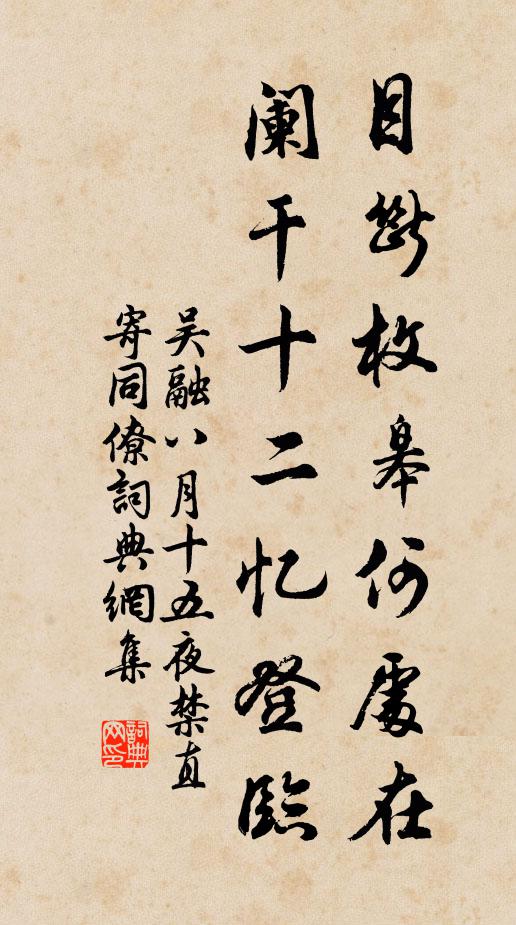 目断枚皋何處在
阑干十二忆登臨
吴融八月十五夜禁直
寄同僚詞典網集
詞典网印